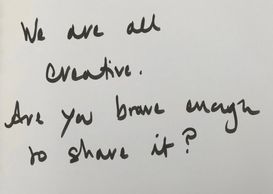 We are all
creative.
Are you brave enough
to share it?